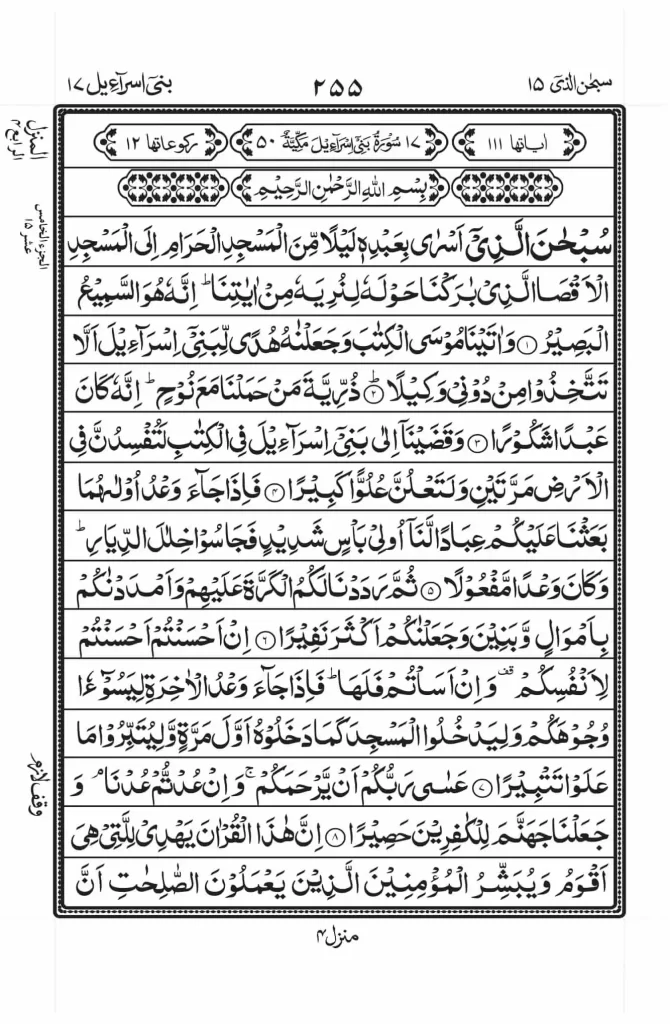 سبحٰن الذیٓ ۱۵
۲۵۵
بنیٓ اسرآءیل ۱۷
اٰیاتها ۱۱۱
۱۷ سُوْرَةُ بَنِیْٓ اِسْرَآءِیْلَ مَكِّیَّةٌ ۵۰
رکوعاتها ۱۲
المنزل الرابع ۴
بِسْمِ اللّٰهِ الرَّحْمٰنِ الرَّحِیْمِ
الجزء الخامس عشر ۱۵
سُبْحٰنَ الَّذِیْٓ اَسْرٰی بِعَبْدِهٖ لَیْلًا مِّنَ الْمَسْجِدِ الْحَرَامِ اِلَی الْمَسْجِدِ
الْاَقْصَا الَّذِیْ بٰرَكْنَا حَوْلَهٗ لِنُرِیَهٗ مِنْ اٰیٰتِنَا ؕ اِنَّهٗ هُوَ السَّمِیْعُ
الْبَصِیْرُ ۝۱ وَ اٰتَیْنَا مُوْسَی الْكِتٰبَ وَ جَعَلْنٰهُ هُدًی لِّبَنِیْٓ اِسْرَآءِیْلَ اَلَّا
تَتَّخِذُوْا مِنْ دُوْنِیْ وَكِیْلًا ۝۲ؕ ذُرِّیَّةَ مَنْ حَمَلْنَا مَعَ نُوْحٍ ؕ اِنَّهٗ كَانَ
عَبْدًا شَكُوْرًا ۝۳ وَ قَضَیْنَاۤ اِلٰی بَنِیْٓ اِسْرَآءِیْلَ فِی الْكِتٰبِ لَتُفْسِدُنَّ فِی
الْاَرْضِ مَرَّتَیْنِ وَ لَتَعْلُنَّ عُلُوًّا كَبِیْرًا ۝۴ فَاِذَا جَآءَ وَعْدُ اُوْلٰىهُمَا
بَعَثْنَا عَلَیْكُمْ عِبَادًا لَّنَاۤ اُولِیْ بَاْسٍ شَدِیْدٍ فَجَاسُوْا خِلٰلَ الدِّیَارِ ؕ
وَ كَانَ وَعْدًا مَّفْعُوْلًا ۝۵ ثُمَّ رَدَدْنَا لَكُمُ الْكَرَّةَ عَلَیْهِمْ وَ اَمْدَدْنٰكُمْ
بِاَمْوَالٍ وَّ بَنِیْنَ وَ جَعَلْنٰكُمْ اَكْثَرَ نَفِیْرًا ۝۶ اِنْ اَحْسَنْتُمْ اَحْسَنْتُمْ
لِاَنْفُسِكُمْ ۫ وَ اِنْ اَسَاْتُمْ فَلَهَا ؕ فَاِذَا جَآءَ وَعْدُ الْاٰخِرَةِ لِیَسُوْٓءٗا
وُجُوْهَكُمْ وَ لِیَدْخُلُوا الْمَسْجِدَ كَمَا دَخَلُوْهُ اَوَّلَ مَرَّةٍ وَّ لِیُتَبِّرُوْا مَا
عَلَوْا تَتْبِیْرًا ۝۷ عَسٰی رَبُّكُمْ اَنْ یَّرْحَمَكُمْ ۚ وَ اِنْ عُدْتُّمْ عُدْنَا ۘ وَ
وقف لازم
جَعَلْنَا جَهَنَّمَ لِلْكٰفِرِیْنَ حَصِیْرًا ۝۸ اِنَّ هٰذَا الْقُرْاٰنَ یَهْدِیْ لِلَّتِیْ هِیَ
اَقْوَمُ وَ یُبَشِّرُ الْمُؤْمِنِیْنَ الَّذِیْنَ یَعْمَلُوْنَ الصّٰلِحٰتِ اَنَّ
منزل ۴